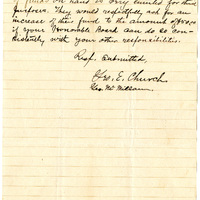 funds on hand is very limited for this
purpose. They would respectfully ask for an
increase of this fund to the amount of
if your Honorable Board can do so con-
sistently with your other responsibilities.
Resp. Submitted,
Geo. E. Church
Geo. M.